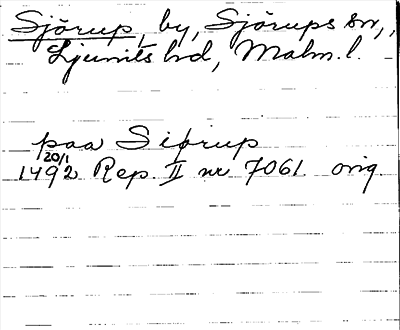 Sjörup, by, Sjörups sn,
Ljunits hd, Malm. l.
paa Siørup
20/1
1492 Rep. II nr 7061 orig.